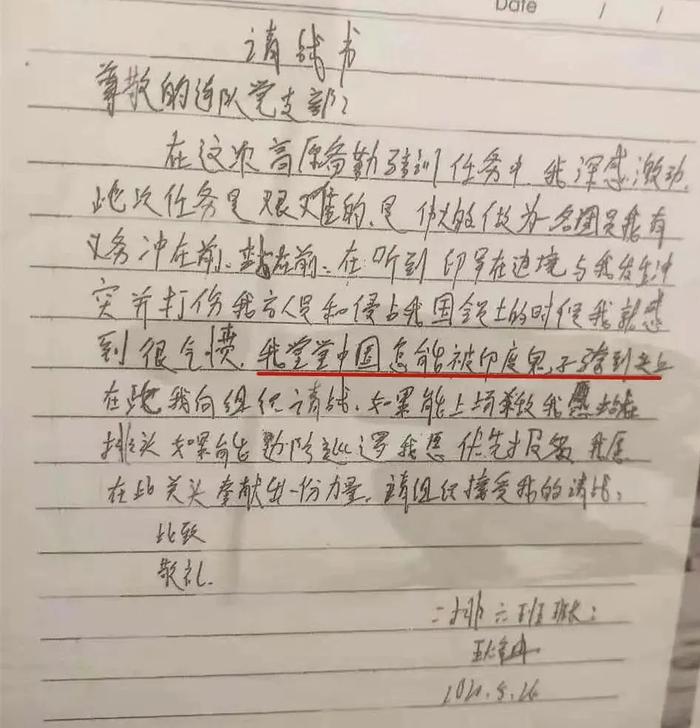 Date / /
请战书
尊敬的连队党支部：
在这次高原备勤驻训任务中，我深感激动，
此次任务是艰难的、是伟大的做为一名团员我有
义务冲在前、站在前、在听到印军在边境与我发生冲
突并打伤我方人员和侵占我国领土的时候我就感
到很气愤，我堂堂中国怎能被印度鬼子骑到头上
在此我向组织请战，如果能上场杀敌我愿站在
排头如果能 我愿优先报名我愿
在此关头奉献出一份力量，请组织接受我的请战。
此致
敬礼
二排六班班长：
2020.5.26